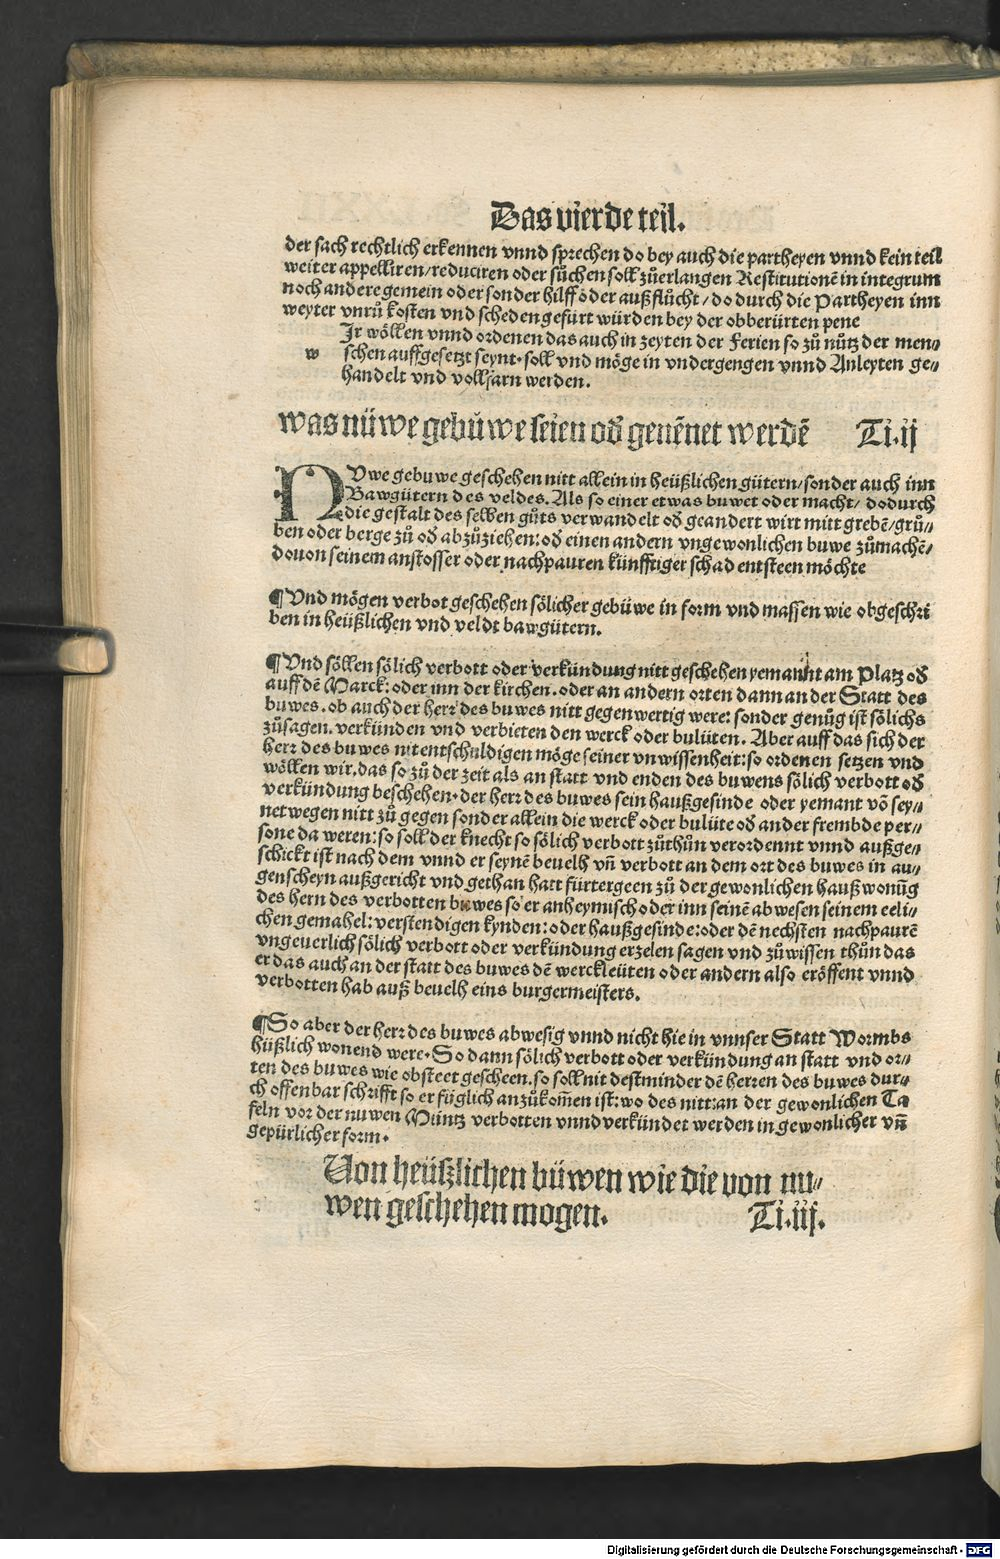 Das vierde teil.
der sach rechtlich erkennen vnnd sprechen do bey auch die partheyen vnnd kein teil
weiter appelliren/reduciren oder sůchen soll zůerlangen Restitutionē in integrum
noch andere gemein oder sonder hilff oder außflücht/do durch die Partheyen inn
weyter vnrů kosten vnd scheden gefurt würden bey der obberürten pene
Jr wöllen vnnd ordenen das auch in zeyten der Ferien so zů nůtz der men⸗
w schen auffgesetzt seynt. soll vnd möge in vndergengen vnnd Anleyten ge⸗
handelt vnd vollfarn werden.
was nüwe gebüwe seien oď genēnet werdē Ti.ij
NVwe gebuwe geschehen nitt allein in heüßlichen gütern/sonder auch inn
Bawgütern des veldes. Als so einer etwas buwet oder macht/dodurch
die gestalt des selben gůts verwandelt oď geandert wirt mitt grebē/grů⸗
ben oder berge zů oď abzůziehen: oď einen andern vngewonlichen buwe zůmachē/
douon seinem anstosser oder nachpauren künfftiger schad entsteen möchte
¶ Vnd mögen verbot geschehen sölicher gebüwe in form vnd massen wie obgeschri
ben in heüßlichen vnd veldt bawgütern.
¶ Vnd söllen sölich verbott oder verkündung nitt geschehen yemannt am Platz oď
auff dē Marck: oder inn der kirchen. oder an andern orten dann an der Statt des
buwes. ob auch der herr des buwes nitt gegenwertig were: sonder genůg ist sölichs
zůsagen. verkünden vnd verbieten den werck oder bulüten. Aber auff das sich der
herr des buwes nit entschuldigen möge seiner vnwissenheit: so ordenen setzen vnd
wöllen wir. das so zů der zeit als an statt vnd enden des buwens sölich verbott oď
verkündung beschehen. der herr des buwes sein haußgesinde oder yemant vō sey⸗
netwegen nitt zů gegen sonder allein die werck oder bulüte oď ander frembde per⸗
sone da weren: so soll der knecht so sölich verbott zůthůn verordennt vnnd außge⸗
schickt ist nach dem vnnd er seynē beuelh vn̄ verbott an dem ort des buwes in au⸗
genscheyn außgericht vnd gethan hatt fürtergeen zů der gewonlichen hauß wonūg
des hern des verbotten buwes so er anheymisch oder inn seinē abwesen seinem eeli⸗
chen gemahel: verstendigen kynden: oder haußgesinde: oder dē nechsten nachpaurē
vngeuerlich sölich verbott oder verkündung erzelen sagen vnd zů wissen thůn das
er das auch an der statt des buwes dē werckleüten oder andern also eröffent vnnd
verbotten hab auß beuelh eins burgermeisters.
¶ So aber der herr des buwes abwesig vnnd nicht hie in vnnser Statt Wormbs
hüßlich wonend were. So dann sölich verbott oder verkündung an statt vnd or⸗
ten des buwes wie obsteet gescheen. so soll nit destminder dē herren des buwes dur⸗
ch offenbar schrifft so er füglich anzůkom̄en ist: wo des nitt: an der gewonlichen Ta
feln vor der nuwen Müntz verbotten vnnd verkündet werden in gewonlicher vn̄
gepürlicher form.
Von heüßlichen büwen wie die von nu⸗
wen geschehen mogen. Ti.iij.
Digitalisierung gefördert durch die Deutsche Forschungsgemeinschaft - DFG